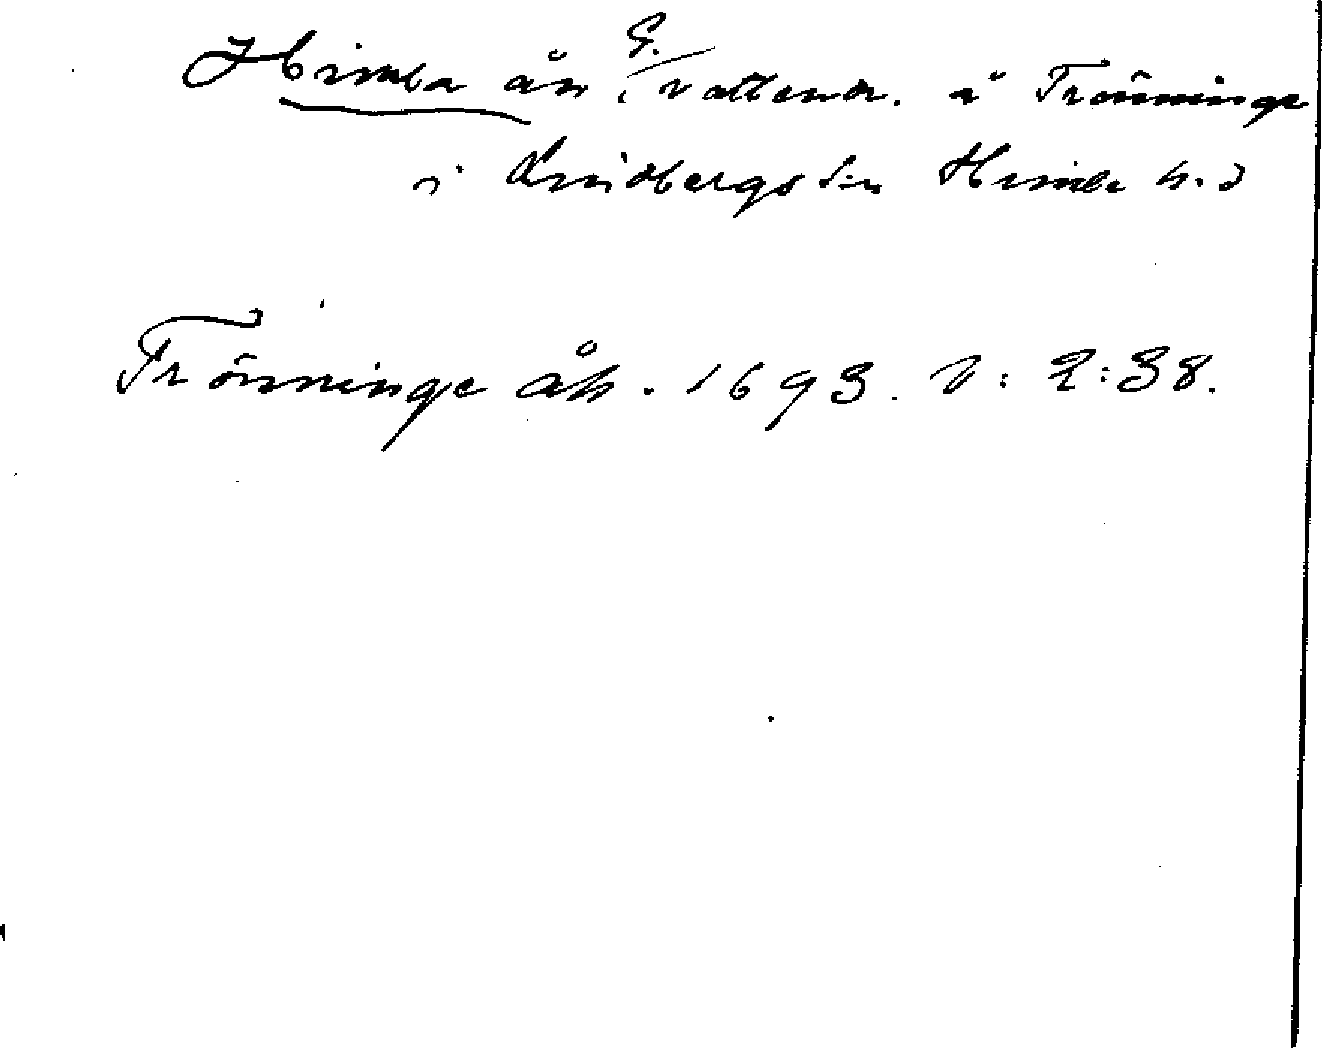 Himla ån, G. vattendr. i Trönninge
i Lindbergs s:n Himle h:d
Trönninge åk. 1693. V: 2:38.